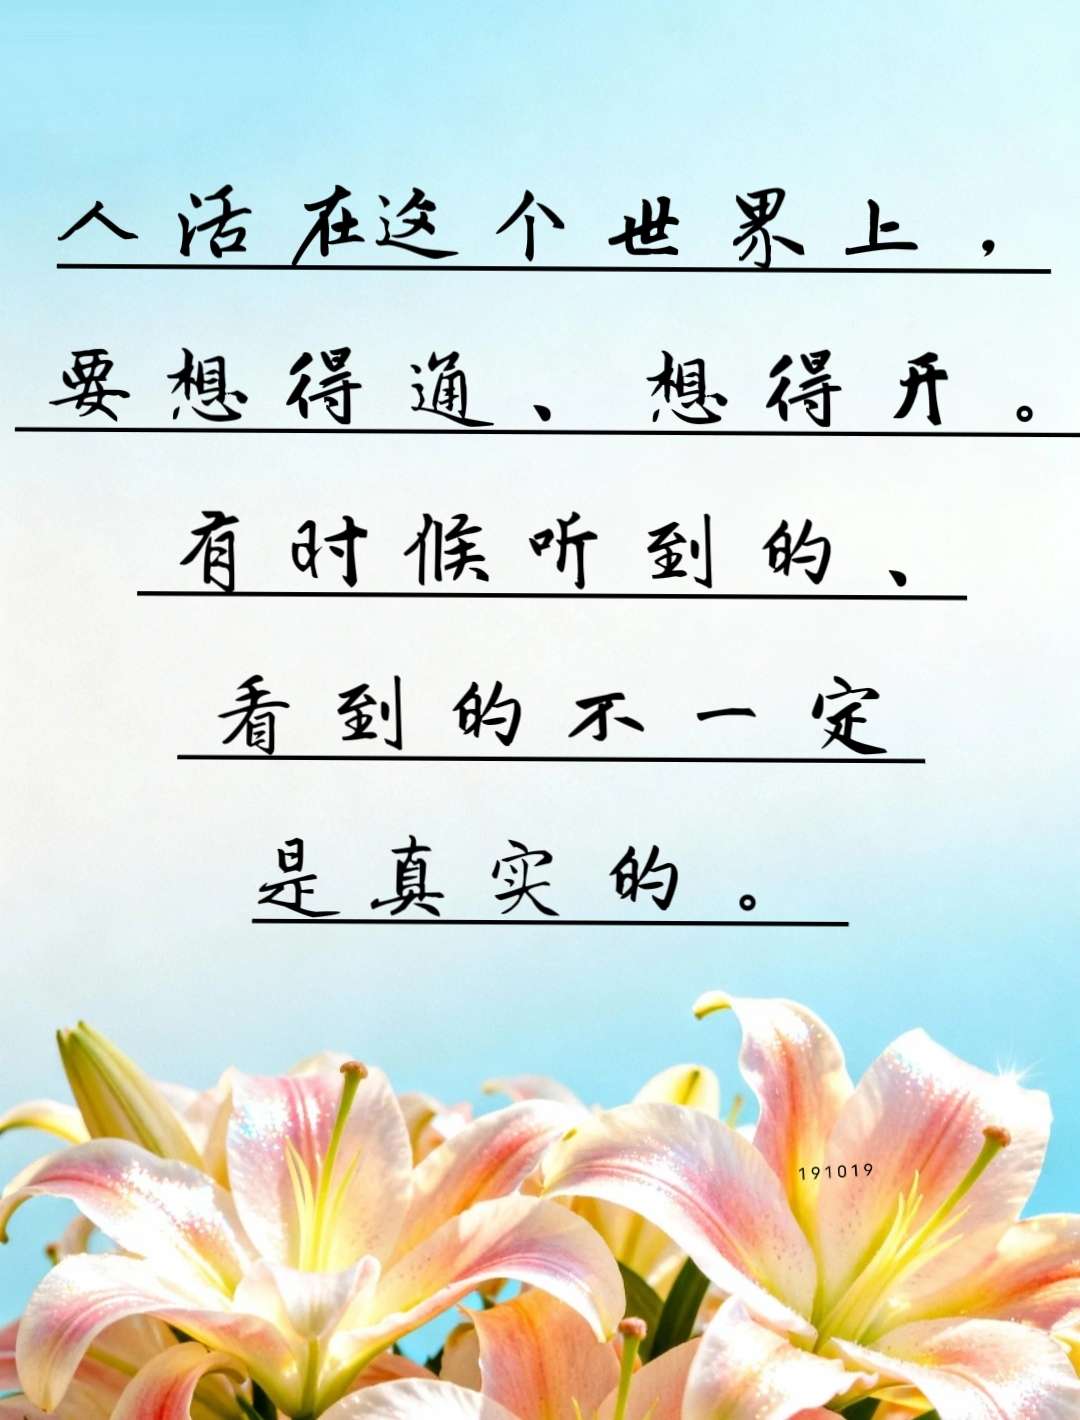 人活在这个世界上，
要想得通、想得开。
有时候听到的、
看到的不一定
是真实的。
191019